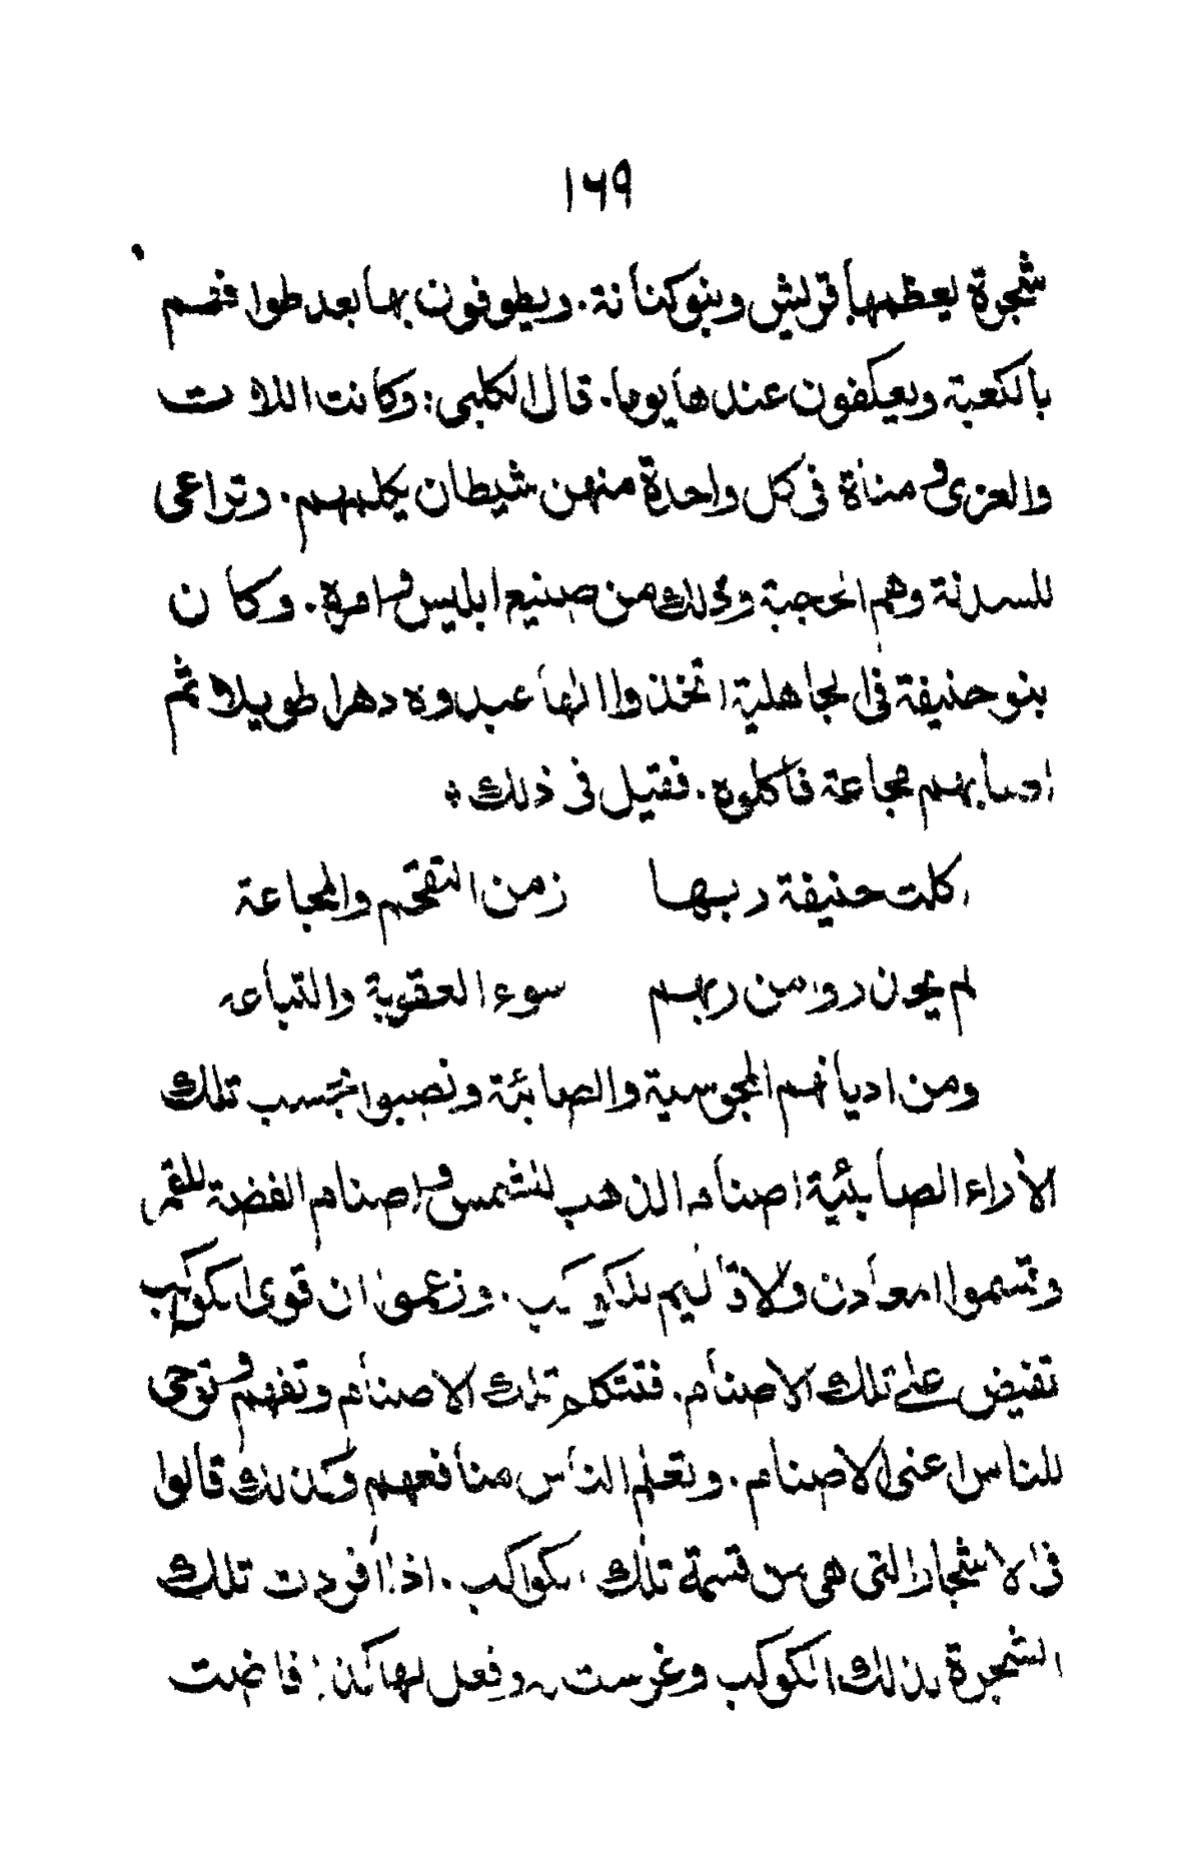 ١٦٩
شجرة يعظمها قريش وبنو كنانة. ويطوفون بها بعد طوافهم
بالكعبة ويعكفون عندها يوما. قال الكلبى: وكانت اللات
والعزى ومناة فى كل واحدة منهن شيطان يكلمهم. وتراءى
للسدنة وهم الحجبة وذلك من صنيع ابليس وامره. وكان
بنو حنيفة فى الجاهلية اتخذوا الها عبدوه دهرا طويلا ثم
اصابهم مجاعة فأكلوه. فقيل فى ذلك
اكلت حنيفة ربها زمن التقحم والمجاعة
لم يحذروا من ربهم سوء العقوبة والتباعه
ومن اديانهم المجوسية والصابئة ونصبوا بحسب تلك
الأراء الصابئية اصنام الذهب للشمس واصنام الفضة للقمر
وقسموا المعادن والاقاليم للكواكب. وزعموا ان قوى الكواكب
تفيض على تلك الاصنام. فتتكلم تلك الاصنام وتفهم وتوحى
للناس اعنى الاصنام. وتعلم الناس منافعهم وكذلك قالوا
فى الاشجار التى هى من قسمة تلك الكواكب. اذا أفردت تلك
الشجرة لذلك الكوكب وغرست له وفعل لها كذا فاضت